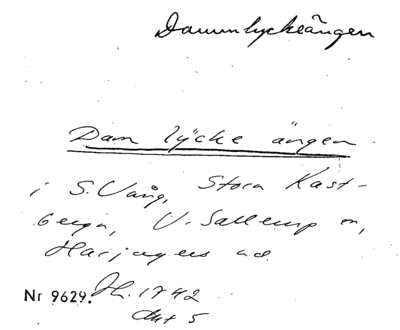 Dammlyckeängen
Dam lycke ängen
i S. Vång, Stora Kast-
berga, V. Sallerup m,
Harjagers hd.
Nr 9629. Lh. 1742
Akt 5